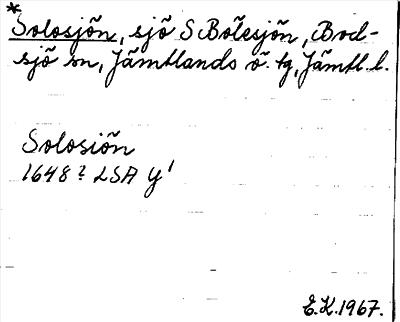 *
Solosjön, sjö S Bölesjön, Bod-
sjö sn, Jämtlands ö. tg, Jämtl. l.
Solosiön
1648? LSA Y¹
E.K. 1967.